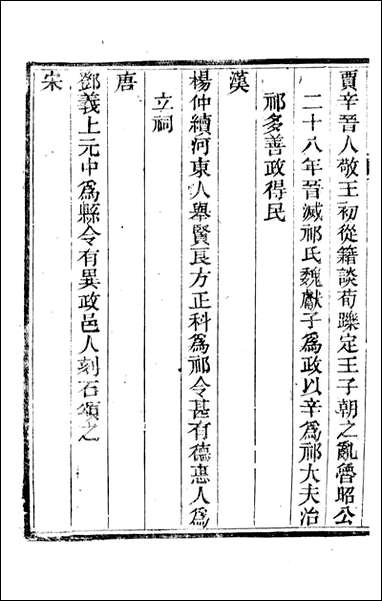 賈辛晉人敬王初從籍談荀躒定王子朝之亂魯昭公
二十八年晉滅祁氏魏獻子爲政以辛爲祁大夫治
祁多善政得民
漢
楊仲續河東人舉賢良方正科爲祁令甚有德惠人爲
立祠
唐
鄧義上元中爲縣令有異政邑人刻石頌之
宋